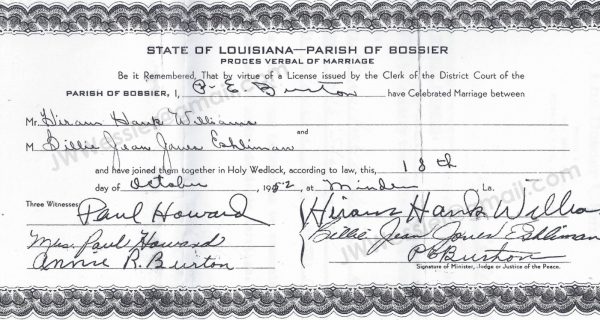 STATE OF LOUISIANA—PARISH OF BOSSIER
PROCES VERBAL OF MARRIAGE
Be it Remembered, That by virtue of a License issued by the Clerk of the District Court of the
PARISH OF BOSSIER, I, P. E. Burton have Celebrated Marriage between
Mr. Hiram Hank Williams
and
M Billie Jean Jones Eshliman
and have joined them together in Holy Wedlock, according to law, this, 18th
day of October, 1952, at Minden La.
Three Witnesses Paul Howard Hiram Hank Willia
Mrs. Paul Howard Billie Jean Jones Eshliman
Annie R. Burton P E Burton
Signature of Minister, Judge or Justice of the Peace.